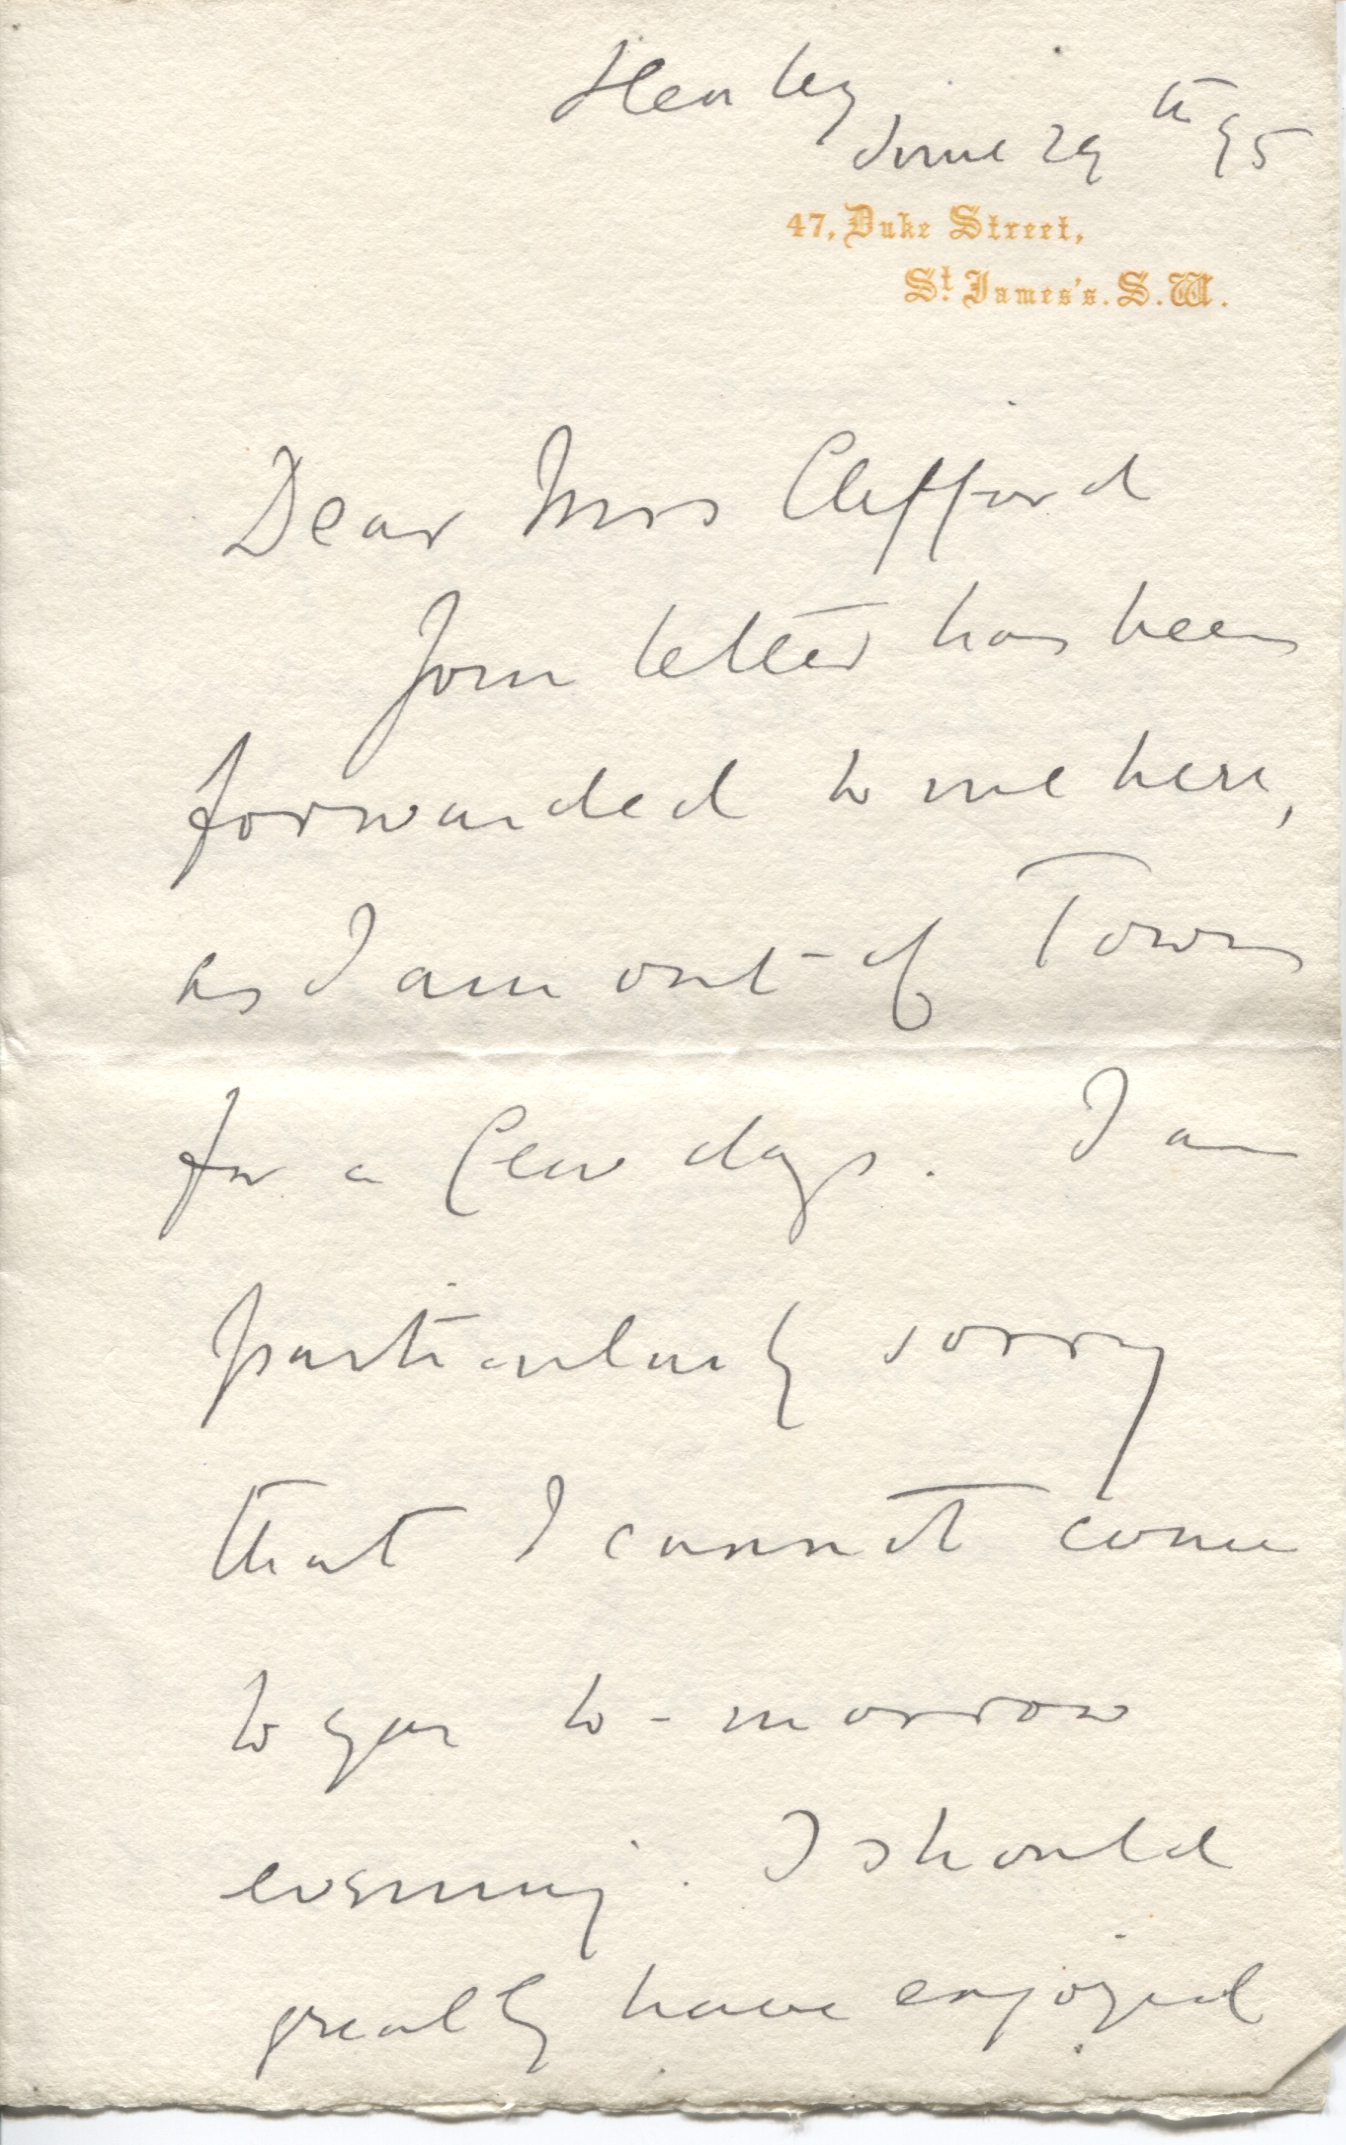 Henley
June 29th 95
47, Duke Street,
St. James's. S.W.
Dear Mrs Clifford
Your letter has been
forwarded to me here,
as I am out of Town
for a few days. I am
particularly sorry
that I cannot come
to you to-morrow
evening. I should
greatly have enjoyed